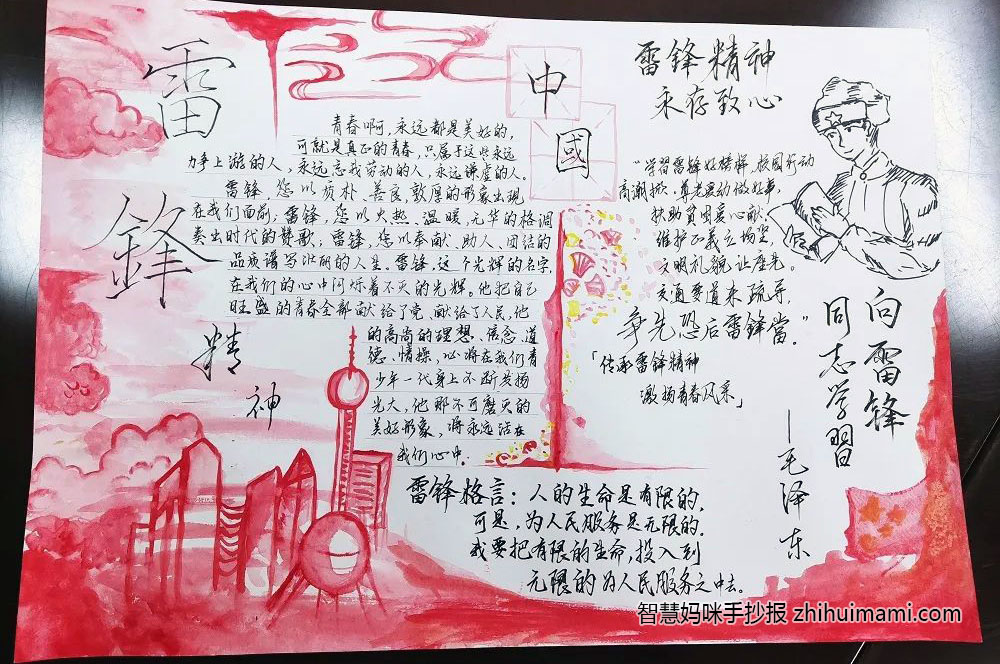 雷鋒
精神
中國
青春啊，永远都是美好的，
可就是真正的青春，只属于这些永远
力争上游的人，永远忘我劳动的人，永远谦虚的人。
雷锋，您以质朴、善良、敦厚的形象出现
在我们面前；雷锋，您以火热、温暖、无华的格调
奏出时代的赞歌；雷锋，您以奉献、助人、团结的
品质谱写壮丽的人生。雷锋，这个光辉的名字，
在我们的心中闪烁着不灭的光辉。他把自己
旺盛的青春全部献给了党、献给了人民，他
的高尚的理想、信念、道
德、情操，必将在我们青
少年一代身上不断发扬
光大，他那不可磨灭的
美好形象，将永远活在
我们心中。
雷锋精神
永存致心
“学習雷锋好榜样，校园行动
高潮掀，尊老爱幼做好事，
扶助貧困爱心献，
维护正義立场坚，
文明礼貌让座先。
交通要道来疏导，
争先恐后雷鋒當。”
「传承雷锋精神
激扬青春风采」
向雷锋
同志学習
——毛泽东
雷锋格言：人的生命是有限的，
可是，为人民服务是无限的.
我要把有限的生命，投入到
无限的为人民服务之中去。
智慧妈咪手抄报 zhihuimami.com